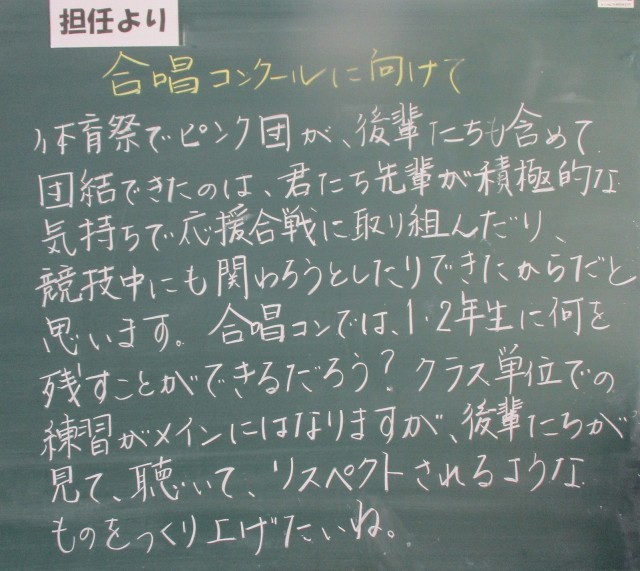 担任より
合唱コンクールに向けて
体育祭でピンク団が、後輩たちも含めて
団結できたのは、君たち先輩が積極的な
気持ちで応援合戦に取り組んだり、
競技中にも関わろうとしたりできたからだと
思います。合唱コンでは、1・2年生に何を
残すことができるだろう？クラス単位での
練習がメインにはなりますが、後輩たちが
見て、聴いて、リスペクトされるような
ものをつくり上げたいね。